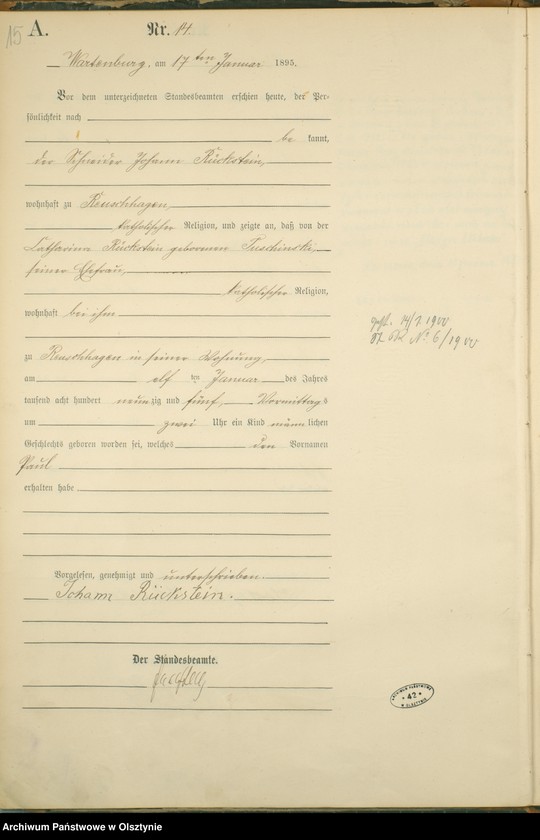 15
A. Nr. 14.
Wartenburg, am 17ten Januar 1895.
Vor dem unterzeichneten Standesbeamten erschien heute, der Per-
sönlichkeit nach
be kannt,
der Schneider Johann Rückstein,
wohnhaft zu Reuschhagen,
katholischer Religion, und zeigte an, daß von der
Catharina Rückstein geborenen Tuschinski,
seiner Ehefrau,
katholischer Religion,
wohnhaft bei ihm
zu Reuschhagen in seiner Wohnung,
am elf ten Januar des Jahres
tausend acht hundert neunzig und fünf, Vormittags
um zwei Uhr ein Kind männlichen
Geschlechts geboren worden sei, welches den Vornamen
Paul
erhalten habe
Vorgelesen, genehmigt und unterschrieben.
Johann Rückstein.
Der Standesbeamte.
gest. 14/2 1900
St. A. No 6/1900
ARCHIWUM PAŃSTWOWE
* 42 *
W OLSZTYNIE
Archiwum Państwowe w Olsztynie